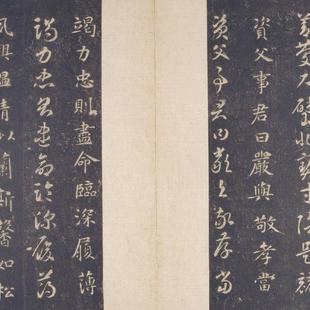 善慶尺璧非寶寸陰是競
資父事君曰嚴與敬孝當
資父事君曰嚴與敬孝當
竭力忠則盡命臨深履薄
竭力忠則盡命臨深履薄
夙興溫凊似蘭斯馨如松